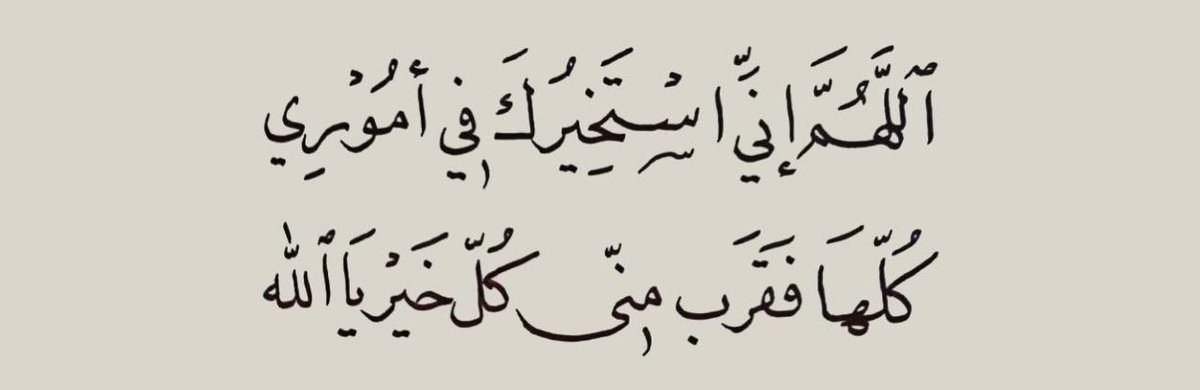 ٱللَّهُمَّ إِنِّي اسْتَخِيرُكَ فِي أُمُوْرِي
كُلِّهَا فَقَرِّب مِنِّى كُلّ خَيْر يَا ٱللّٰه